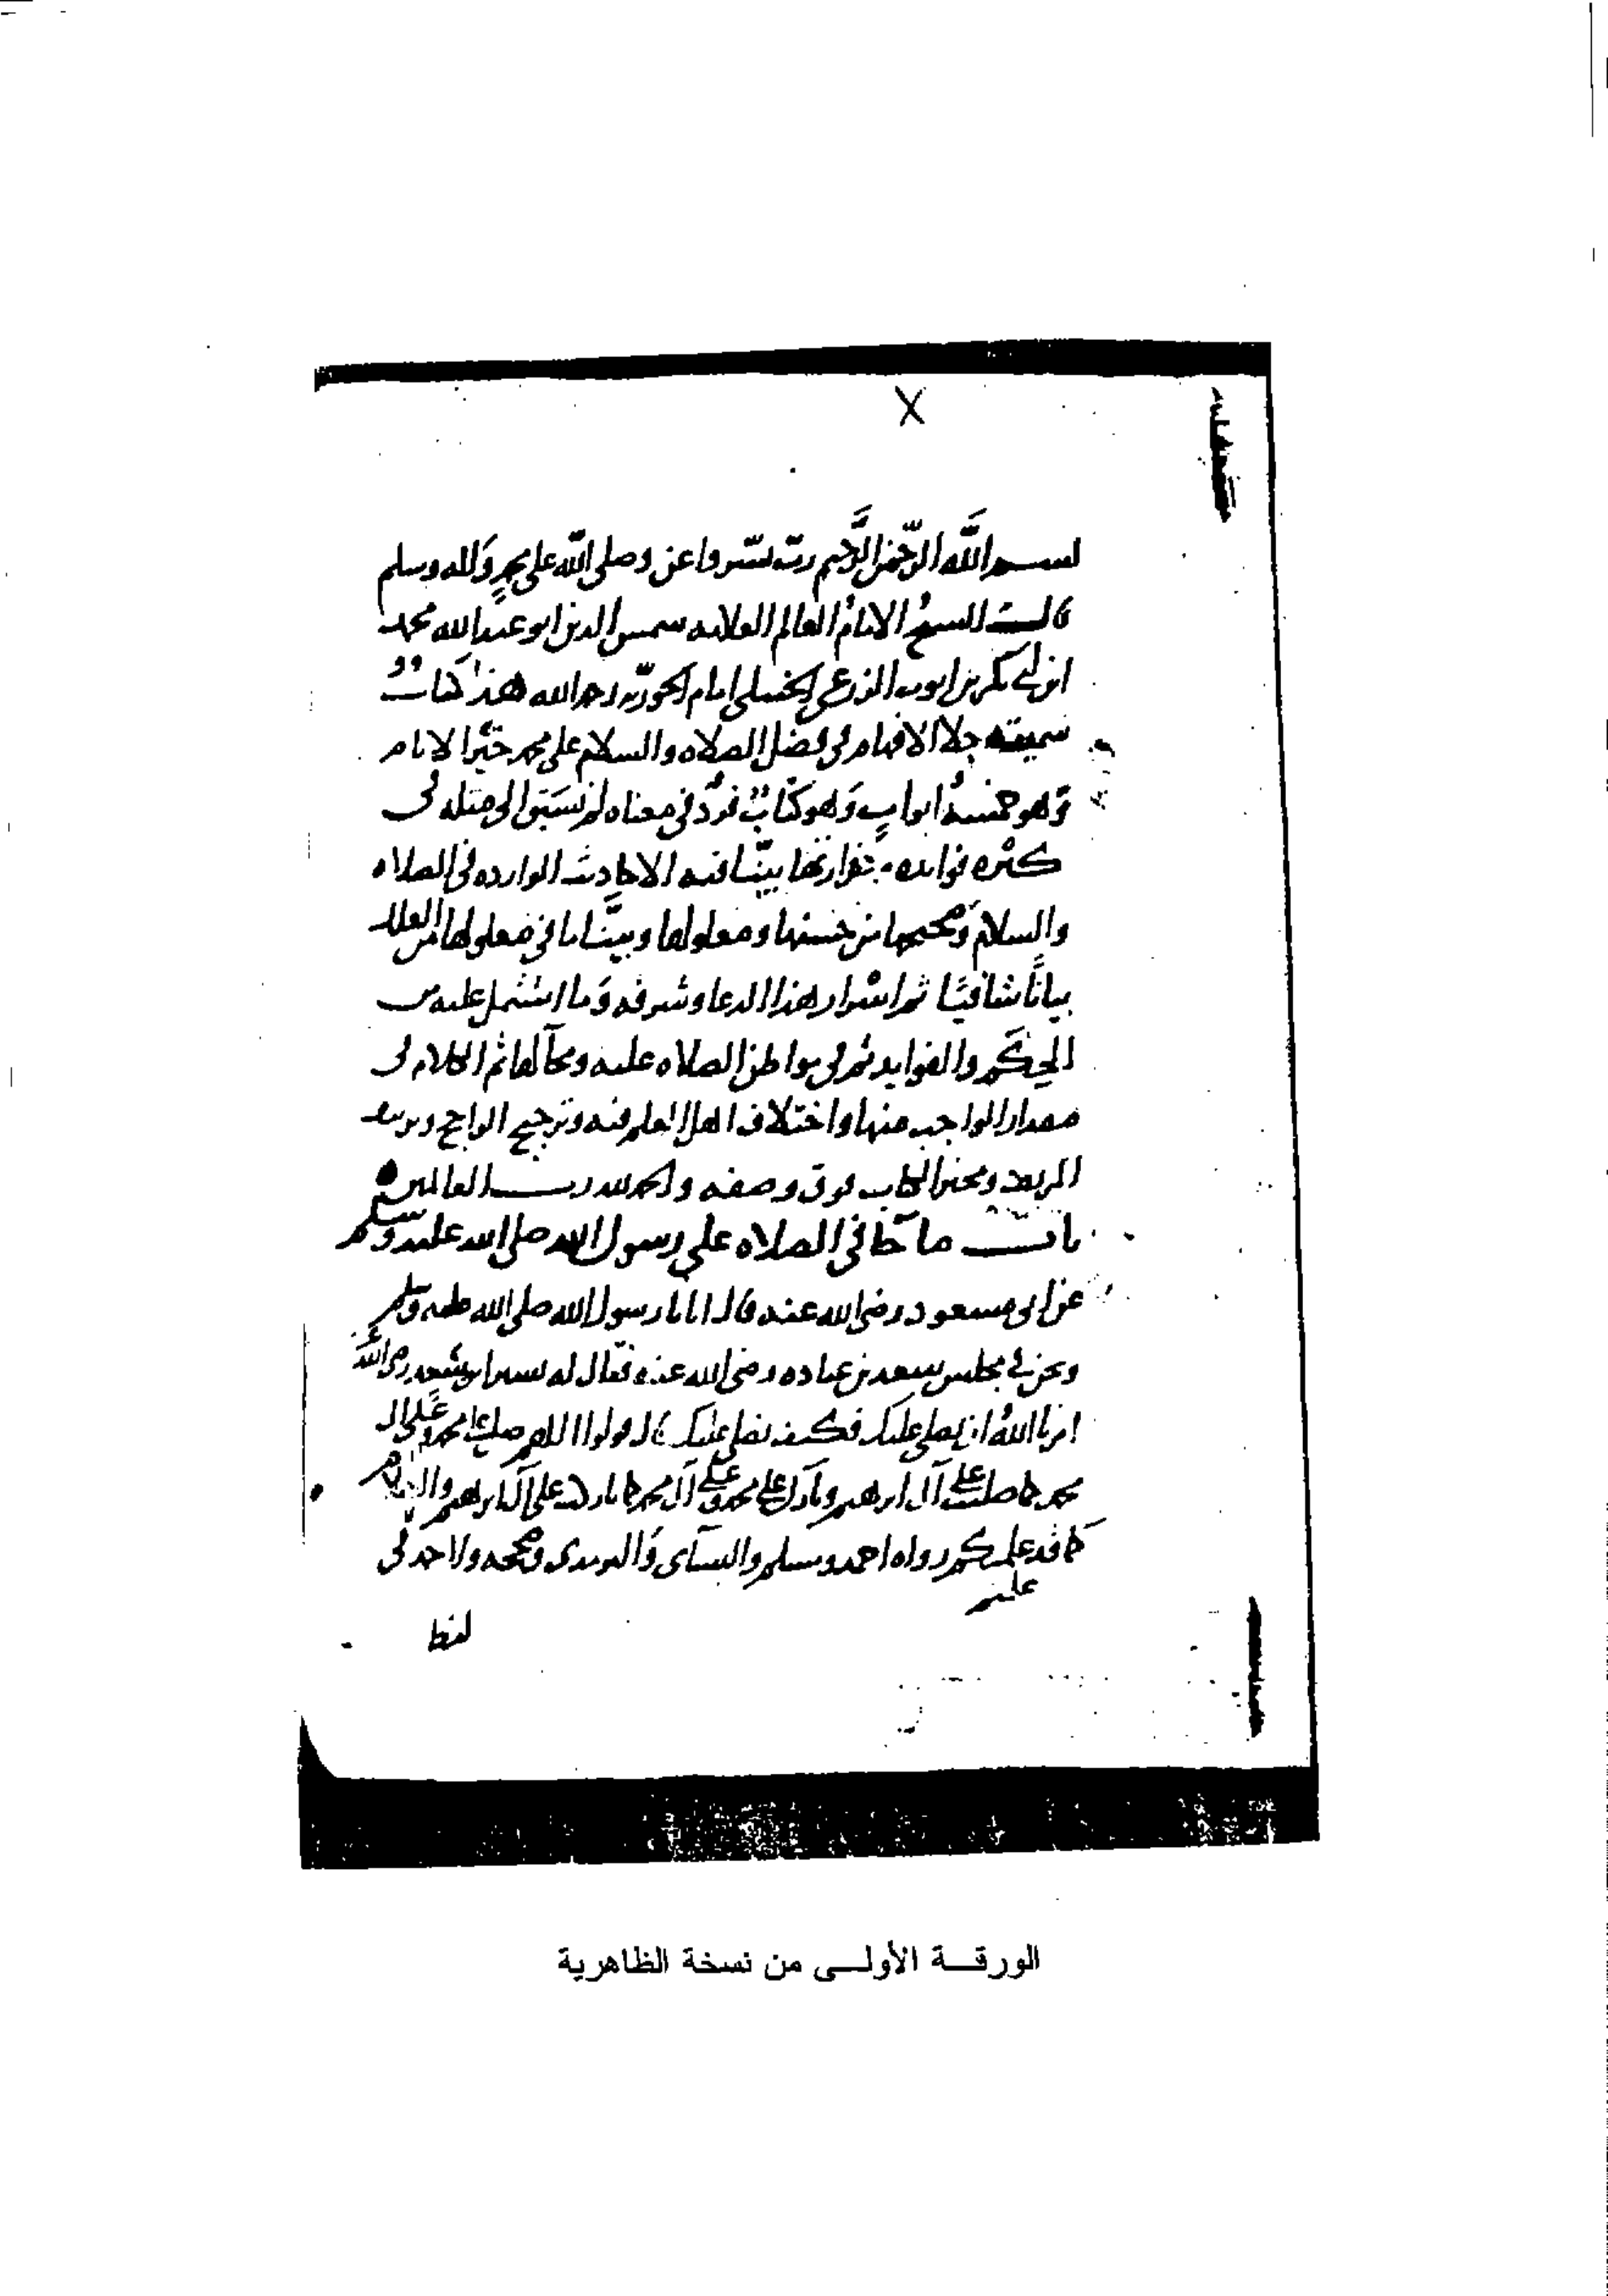 بسم الله الرحمن الرحيم رب يسر واعن وصلى الله على محمد واله وسلم
قال الشيخ الامام العالم العلامه شمس الدين ابو عبد الله محمد
ابن ابي بكر بن ايوب الزرعي الحنبلي امام الجوزيه رحمه الله هذا كتاب
سميته جلا الافهام في فضل الصلاه والسلام على محمد خير الانام
وهو خمسة ابواب وهو كتاب فرد في معناه لم نسبق الى مثله في
كثره فوايده وغزارتها بينا فيه الاحاديث الوارده في الصلاه
والسلام وصحيحها من حسنها ومعلولها وبينا ما في معلولها من العلل
بيانا شافيا ثم اسرار هذا الدعا وشرفه وما اشتمل عليه من
الحكم والفوايد ثم في مواطن الصلاه عليه ومحالها ثم الكلام في
مقدار الواجب منها واختلاف اهل العلم فيه وترجيح الراجح وتزييف
المزيف ومخبر الكتاب فوق وصفه والحمد لله رب العالمين
باب ما جا في الصلاه على رسول الله صلى الله عليه وسلم
عن ابي مسعود رضي الله عنه قال اتانا رسول الله صلى الله عليه وسلم
ونحن في مجلس سعد بن عباده رضي الله عنه فقال له بشير بن سعد رضي الله عنه
امرنا الله ان نصلي عليك فكيف نصلي عليك قال قولوا اللهم صل على محمد وعلى ال
محمد كما صليت على آل ابرهيم وبارك على محمد وعلى آل محمد كما باركت على آل ابرهيم والسلام
كما قد علمتكم رواه احمد ومسلم والنسآى والترمدى وصححه ولاحمد في
علمتم
لفظ
الورقة الأولى من نسخة الظاهرية